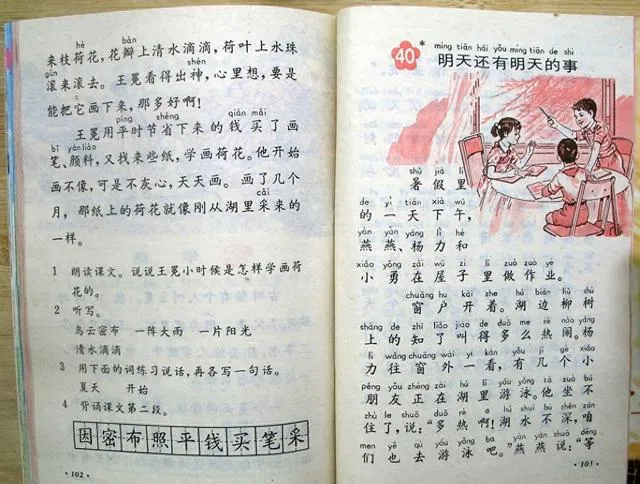 hé bàn
来枝荷花，花瓣上清水滴滴，荷叶上水珠
gǔn shén
滚来滚去。王冕看得出神，心里想，要是
能把它画下来，那多好啊！
píng shěng qián mǎi
王冕用平时节省下来的钱买了画
bǐ yán liào
笔、颜料，又找来些纸，学画荷花。他开始
画不像，可是不灰心，天天画。画了几个
cǎi
月，那纸上的荷花就像刚从湖里采来的
一样。
1 朗读课文。说说王冕小时候是怎样学画荷
花的。
2 听写。
乌云密布 一阵大雨 一片阳光
清水滴滴
3 用下面的词练习说话，再各写一句话。
夏天 开始
4 背诵课文第二段。
因密布照平钱买笔采
·102·
míng tiān hái yǒu míng tiān de shì
40* 明天还有明天的事
shǔ jià lǐ
暑假里
de yì tiān xià wǔ
的一天下午，
yàn yàn yáng lì hé
燕燕、杨力和
xiǎo yǒng zài wū zi lǐ zuò zuò yè
小勇在屋子里做作业。
chuāng hu kāi zhe hú biān liǔ shù
窗户开着。湖边柳树
shàng de zhī liǎo jiào de duō me rè nào yáng
上的知了叫得多么热闹。杨
lì wǎng chuāng wài yí kàn yǒu jǐ gè xiǎo
力往窗外一看，有几个小
péng yǒu zhèng zài hú lǐ yóu yǒng tā zuò bú
朋友正在湖里游泳。他坐不
zhù le shuō duō rè a hú shuǐ bù shēn zán
住了，说：“多热啊！湖水不深，咱
men yě qù yóu yǒng ba yàn yàn shuō děng
们也去游泳吧。”燕燕说：“等
·103·